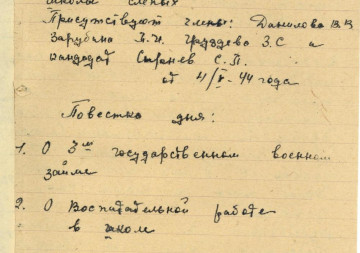 школы слепых
Присутствуют члены: Данилова В.В
Зарубина Груздева З.С и
кандидат Сыренев С.П.
от 4/V-44 года
Повестка дня:
1. О 3м государственном военном
займе
2. О Воспитательной работе
в школе